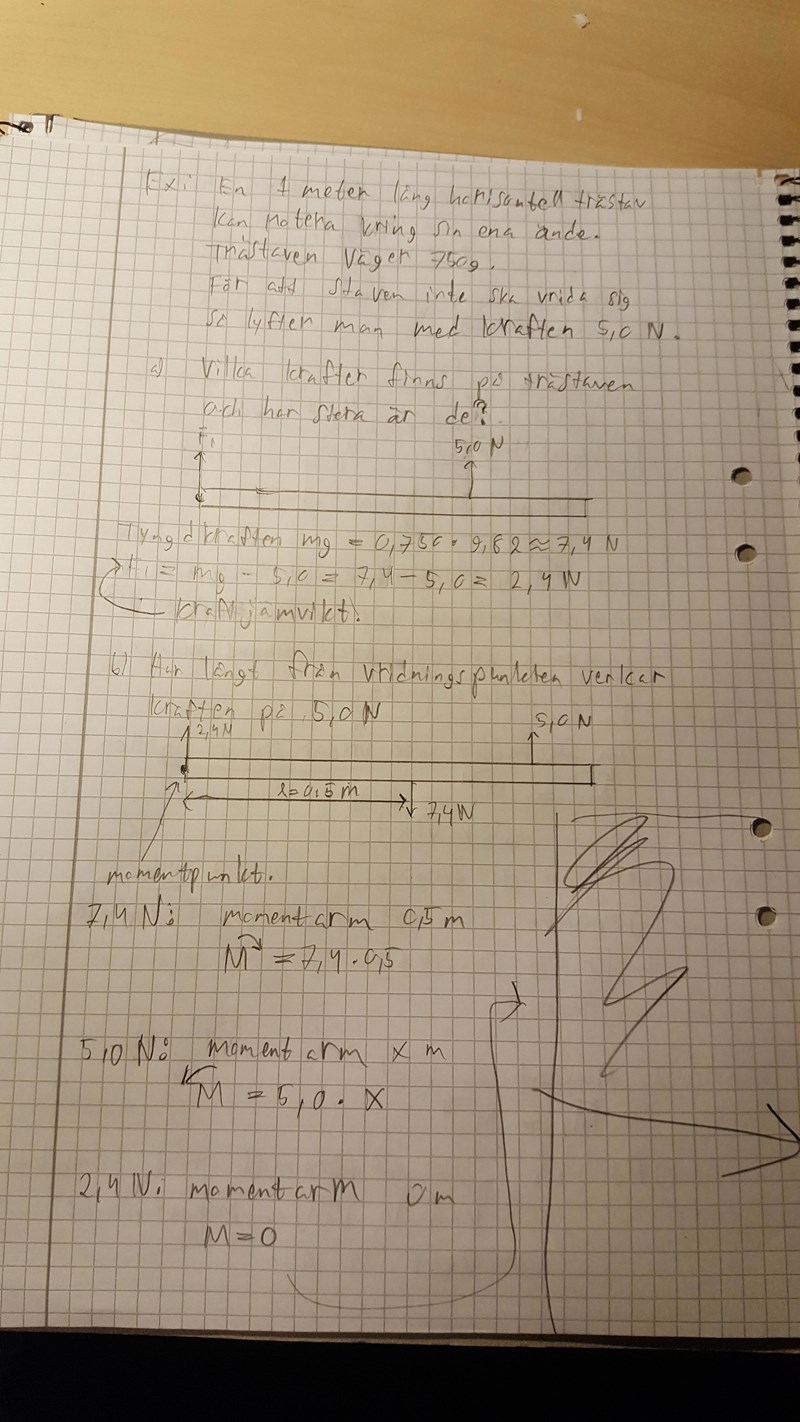 Ex: En 1 meter lång horisontell trästav
kan rotera kring sin ena ände.
Trästaven väger 750g.
För att staven inte ska vrida sig
så lyfter man med kraften 5,0 N.
a) Vilka krafter finns på trästaven
och hur stora är de?
F₁
5,0 N
Tyngdkraften mg = 0,750 · 9,82 ≈ 7,4 N
F₁ = mg - 5,0 = 7,4 - 5,0 = 2,4 N
kraftjämvikt!
b) Hur långt från vridningspunkten verkar
kraften på 5,0 N
2,4 N
5,0 N
l=0,5 m
7,4 N
momentpunkt.
7,4 N: momentarm 0,5 m
M = 7,4 · 0,5
5,0 N: momentarm x m
M = 5,0 · x
2,4 N: momentarm 0 m
M = 0